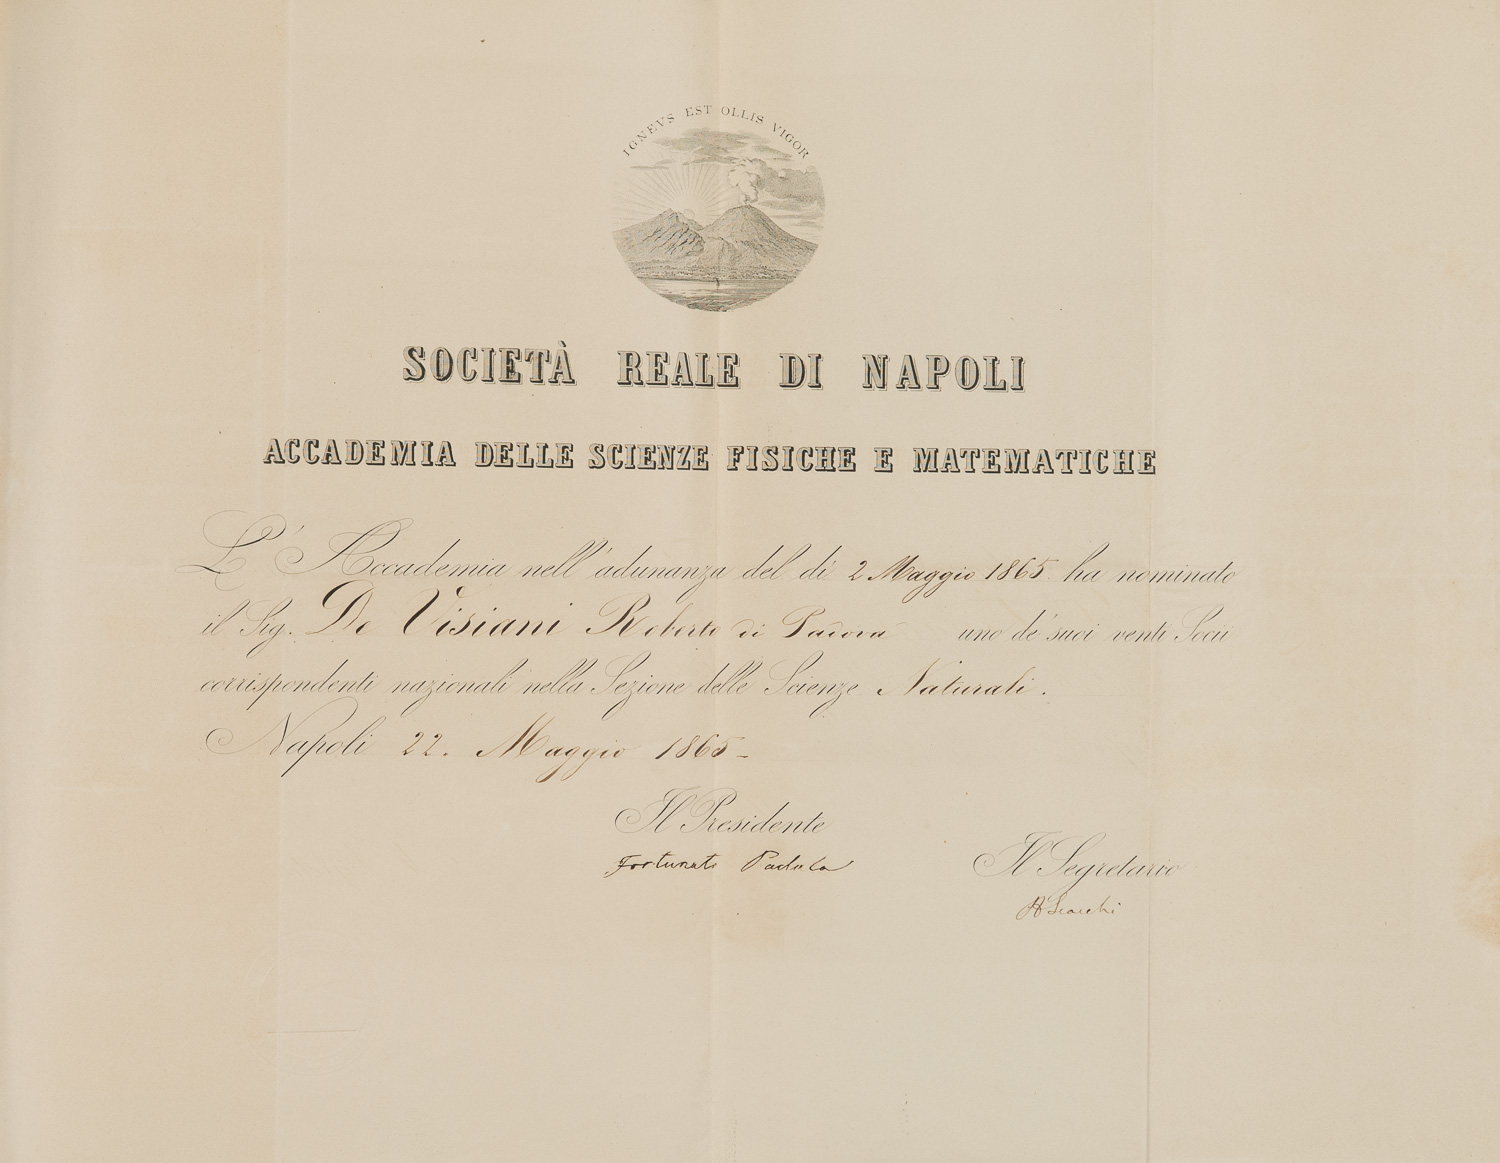 IGNEVS EST OLLIS VIGOR
SOCIETÀ REALE DI NAPOLI
ACCADEMIA DELLE SCIENZE FISICHE E MATEMATICHE
L'Accademia nell'adunanza del dì 2 Maggio 1865 ha nominato
il Sig. De Visiani Roberto di Padova uno de' suoi venti Socii
corrispondenti nazionali nella Sezione delle Scienze Naturali.
Napoli 22. Maggio 1865-
Il Presidente
Fortunato Padula
Il Segretario
A Scacchi